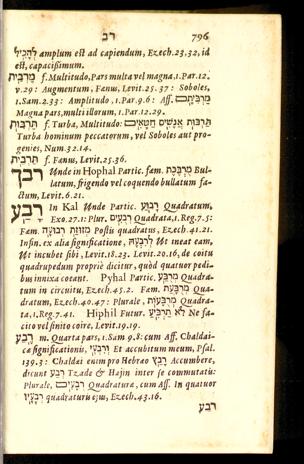 רב 796
לְהָכִיל amplum est ad capiendum, Ezech.23.32, id
est, capacissimum.
מַרְבִּית f. Multitudo, Pars multa vel magna, 1.Par.12.
v.29: Augmentum, Fœnus, Levit.25.37: Soboles,
1.Sam.2.33: Amplitudo, 1.Par.9.6: Aff. מַרְבִּיתָם
Magna pars, multi illorum, 1.Par.12.29.
תַּרְבּוּת f. Turba, Multitudo: תַּרְבּוּת אֲנָשִׁים חַטָּאִים
Turba hominum peccatorum, vel Soboles aut pro-
genies, Num.32.14.
תַּרְבִּית f. Fœnus, Levit.25.36.
רבך Unde in Hophal Partic. fœm. מֻרְבֶּכֶת Bul-
latum, frigendo vel coquendo bullatum fa-
ctum, Levit.6.21.
רבע In Kal Unde Partic. רָבוּעַ Quadratum,
Exo.27.1: Plur. רְבֻעִים Quadrata, 1.Reg.7.5:
Fœm. מְזוּזַת רְבֻעָה Postis quadratus, Ezech.41.21.
Infin. ex alia significatione, לְרִבְעָהּ Ut ineat eam,
Ut incubet sibi, Levit.18.23. Levit.20.16, de coitu
quadrupedum propriè dicitur, quòd quatuor pedi-
bus innixa coeant. Pyhal Partic. מְרֻבָּע Quadra-
tum in circuitu, Ezech.45.2. Fœm. מְרֻבַּעַת Qua-
dratum, Ezech.40.47: Plurale, מְרֻבָּעוֹת Quadra-
ta, 1.Reg.7.41. Hiphil Futur. לֹא תַרְבִּיעַ Ne fa-
cito vel sinito coire, Levit.19.19.
רֶבַע m. Quarta pars, 1.Sam 9.8: cum Aff. Chaldai-
ca significationis, וְרִבְעִי Et accubitum meum, Psal.
139.3: Chaldæi enim pro Hebræo רָבַץ Accumbere,
dicunt רְבַע Tzade & Hajin inter se commutatis:
Plurale, רְבָעִים Quadratura, cum Aff. In quatuor
רְבָעָיו quadraturis ejus, Ezech.43.16.
רבע